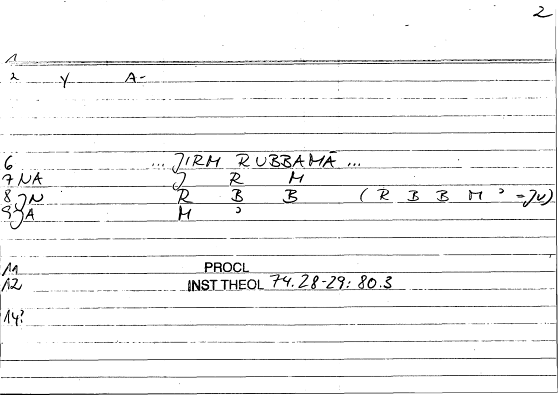 2
1
2 Y A-
6 ... JIRM RUBBAMĀ ...
7 NA J R M
8 JN R B B ( R B B M ʾ = Ju)
9 JA M ʾ
11 PROCL
12 INST THEOL 74.28-29; 80.3
14?